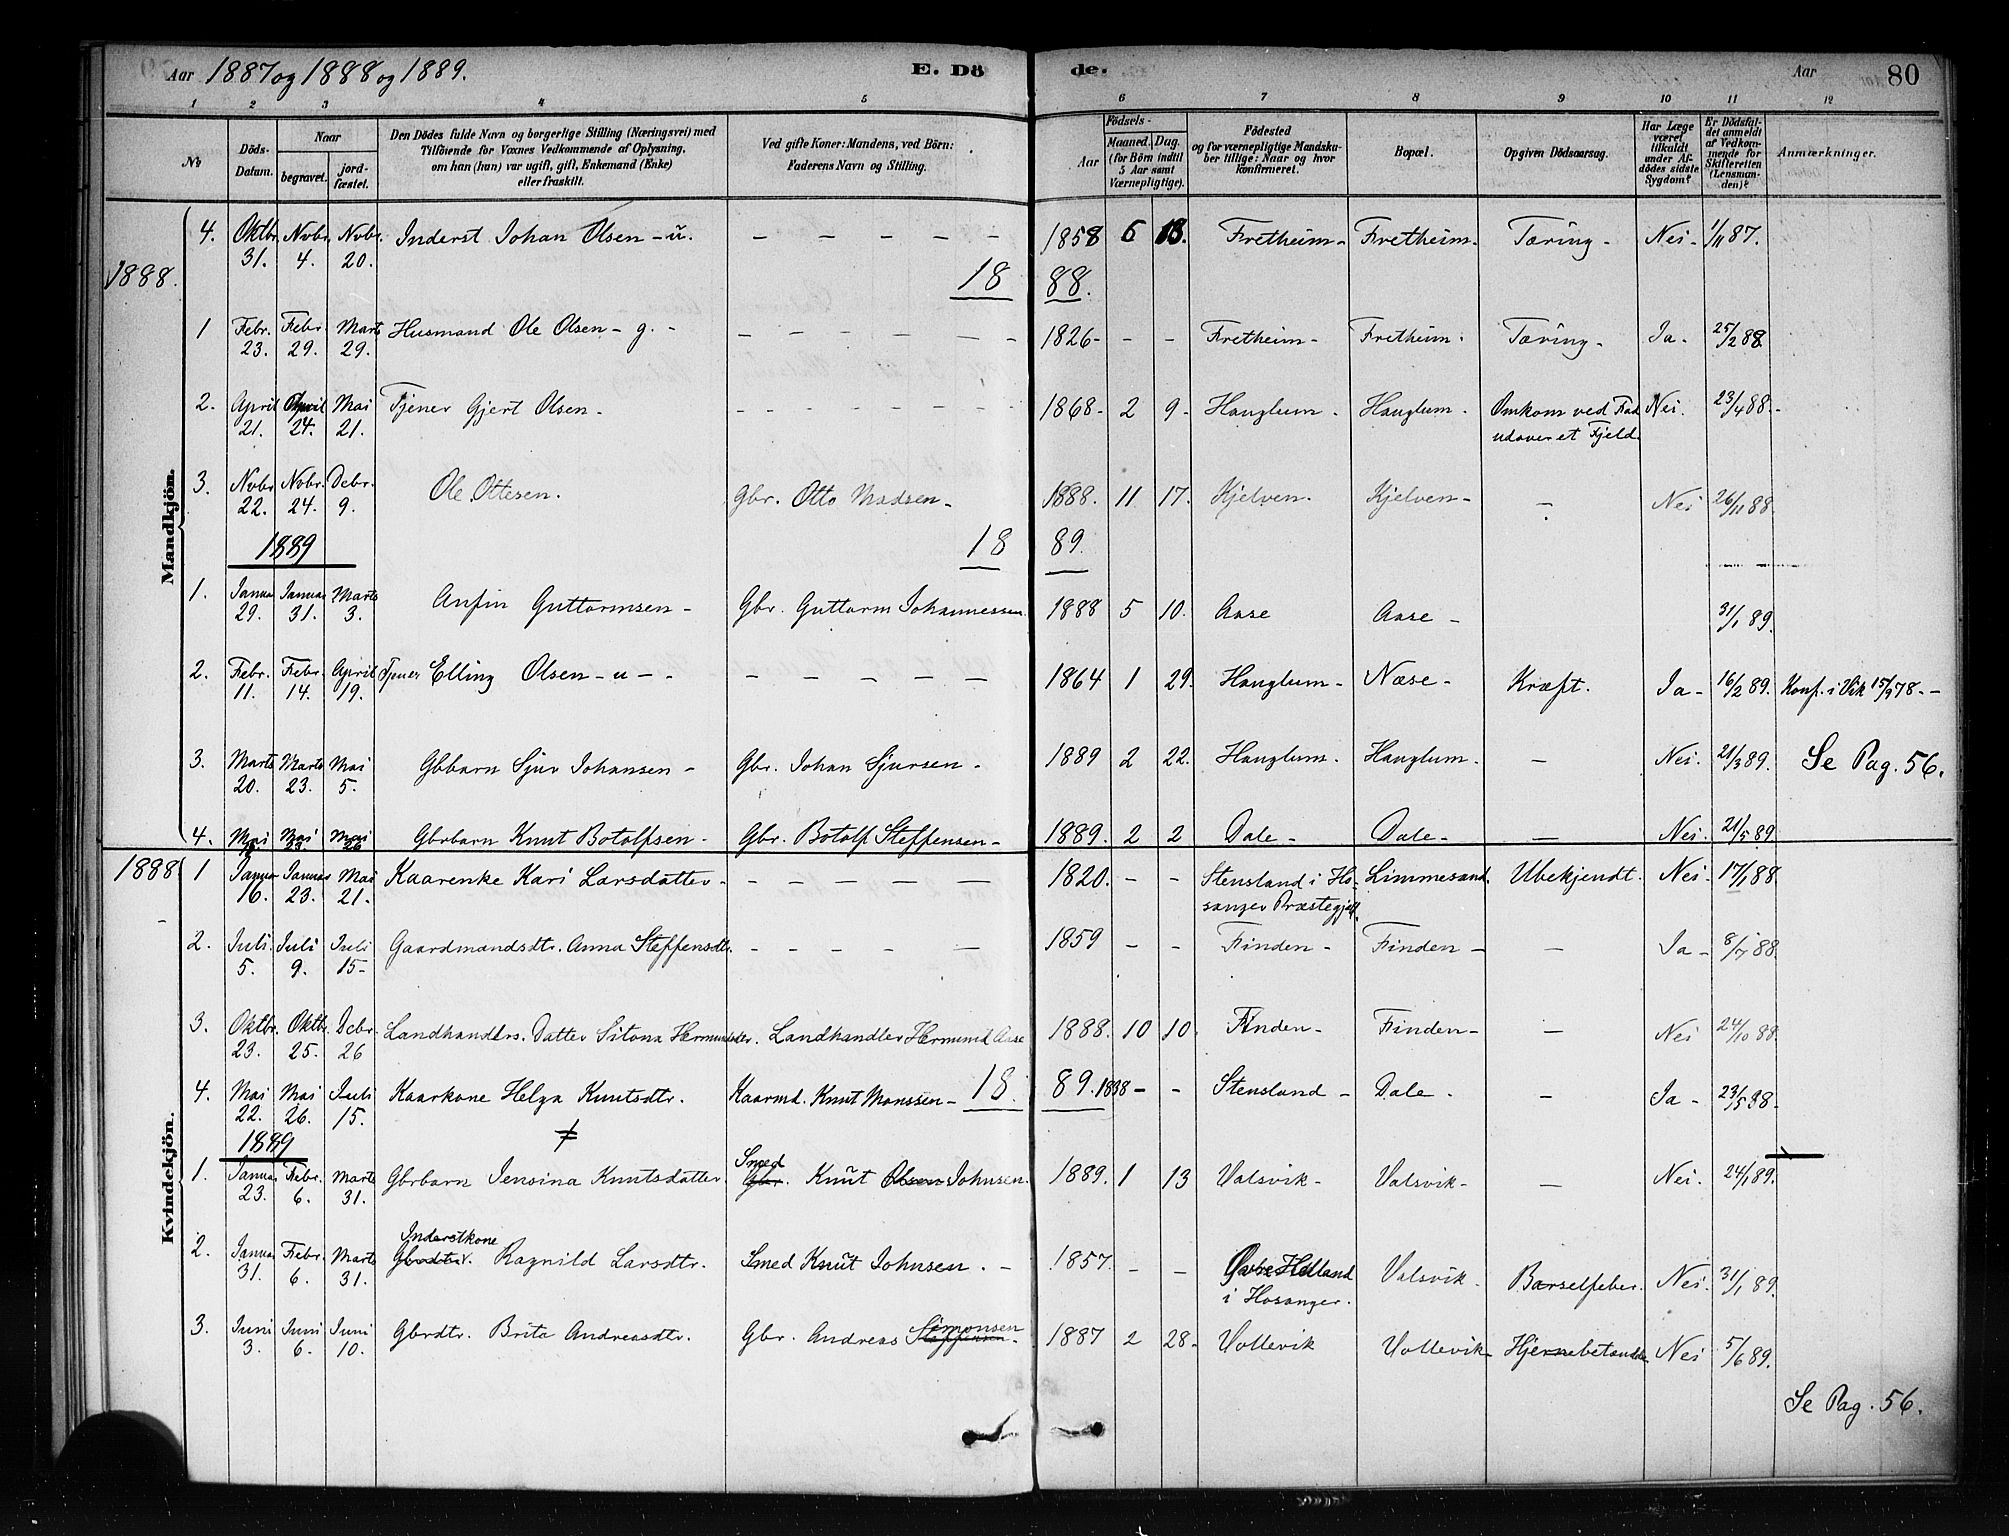 Aar 1887 og 1888 og 1889. E. Dö de. Aar 80
1 2 3 4 5 6 7 8 9 10 11 12
No
Döds-Datum.
Naar
begravet.
jord-fæstet.
Den Dödes fulde Navn og borgerlige Stilling (Næringsvei) med
Tilföiende for Voxnes Vedkommende af Oplysning,
om han (hun) var ugift, gift, Enkemand (Enke)
eller fraskilt.
Ved gifte Koner: Mandens, ved Börn:
Faderens Navn og Stilling.
Födsels-
Aar
Maaned. Dag.
(for Börn indtil
5 Aar samt
Værnepligtige).
Födested
og for værnepligtige Mandsku-
ber tillige: Naar og hvor
konfirmeret.
Bopæl.
Opgiven Dödsaarsag.
Har Læge
været
tilkaldt
under Af-
dödes sidste
Sygdom?
Er Dödsfal-
det anmeldt
af Vedkom-
mende for
Skifteretten
(Lensman-
den)?
Anmærkninger.
Mandkjön.
4. Oktbr. 31. Novbr. 4. Novbr. 20. Inderst Johan Olsen - u. — — — — — 1858 6 13. Fretheim - Fretheim - Tæring - Nei - 1/11 87.
1888. 18 88.
1 Febr. 23. Febr. 29. Marts 29. Husmand Ole Olsen - g. - — — — — — 1826 - - - Fretheim - Fretheim. Tæring - Ja - 25/2 88.
2. April 21. April 24. Mai 21. Tjener Gjert Olsen - - - - - - - - 1868 - 2 9 - Hanglum - Hanglum - Omkom ved Fad Nei. 23/4 88. -
udover et Fjeld.
3. Novbr. 22. Novbr. 24. Debr. 9. Ole Ottesen. Gbr. Otto Madsen - 1888. 11 17. Kjelven. Kjelven - — Nei 26/11 88.
1889 18 89.
1. Januar 29. Januar 31. Marts 3. Anfin Guttormsen - Gbr. Guttorm Johannessen 1888 5 10. Aase Aase - 31/1 89.
2. Febr. 11. Febr. 14. April 19. Tjener Elling Olsen - u - - — — — — — 1864 1 29. Hanglum - Næse - Kræft. Ja - 16/2 89. Konf. i Vik 15/9 78. -
3. Marts 20. Marts 23. Mai 5. Gbbarn Sjur Johansen - Gbr. Johan Sjursen - 1889 2 22. Hanglum. Hanglum. — Nei. 21/3 89. Se Pag. 56.
4. Mai Mai Mai 26 Gbrbarn Knut Botolfsen - Gbr. Botolf Steffensen - 1889. 2 2 Dale - Dale - — Nei. 21/5 89
Kvindekjön.
1888. 1 Januar 16. Januar 23. Mai 21. Kaarenke Kari Larsdatter - — — — — — 1820. - - Stensland i Ho- Limmesand. Ubekjendt. Nei - 17/1 88.
sanger Præstegjeld.
2. Juli 5. Juli 9. Juli 15 - Gaardmandsdtr. Anna Steffensdtr. - - - - — 1859 - - Finden - Finden - — Ja - 8/7 88.
3. Oktbr. 23. Oktbr. 25. Debr. 26 Landhandlers. Datter Sitona Hermundsdtr. Landhandler Hermund Aase 1888. 10 10. Finden - Finden - — Nei 24/10 88.
4. Mai 22. Mai 26. Juli 15. Kaarkone Helga Knutsdtr. Kaarmd. Knut Monssen - 18. 89. 1838 - - Stensland - Dale. - Ja - 23/5 88 -
1889
1. Januar 23. Febr. 6. Marts 31. Gbrbarn Jensina Knutsdatter Smed Gbr. Knut Olsen Johnsen. 1889. 1 13 Valsvik - Valsvik - — Nei. 24/1 89.
2. Januar 31. Febr. 6. Marts 31. Inderstkone Gbrdtr. Ragnild Larsdtr. Smed Knut Johnsen. - 1857. - - Øvre Helland Valsvik. Barselfeber. Nei. 31/1 89.
i Hosanger.
3. Juni 3. Juni 6. Juni 10. Gbrdtr. Brita Andreasdtr. Gbr. Andreas Simonsen Steffensen - 1887 2 28 - Vollevik Vollevik - Nei 5/6 89.
Se Pag. 56.